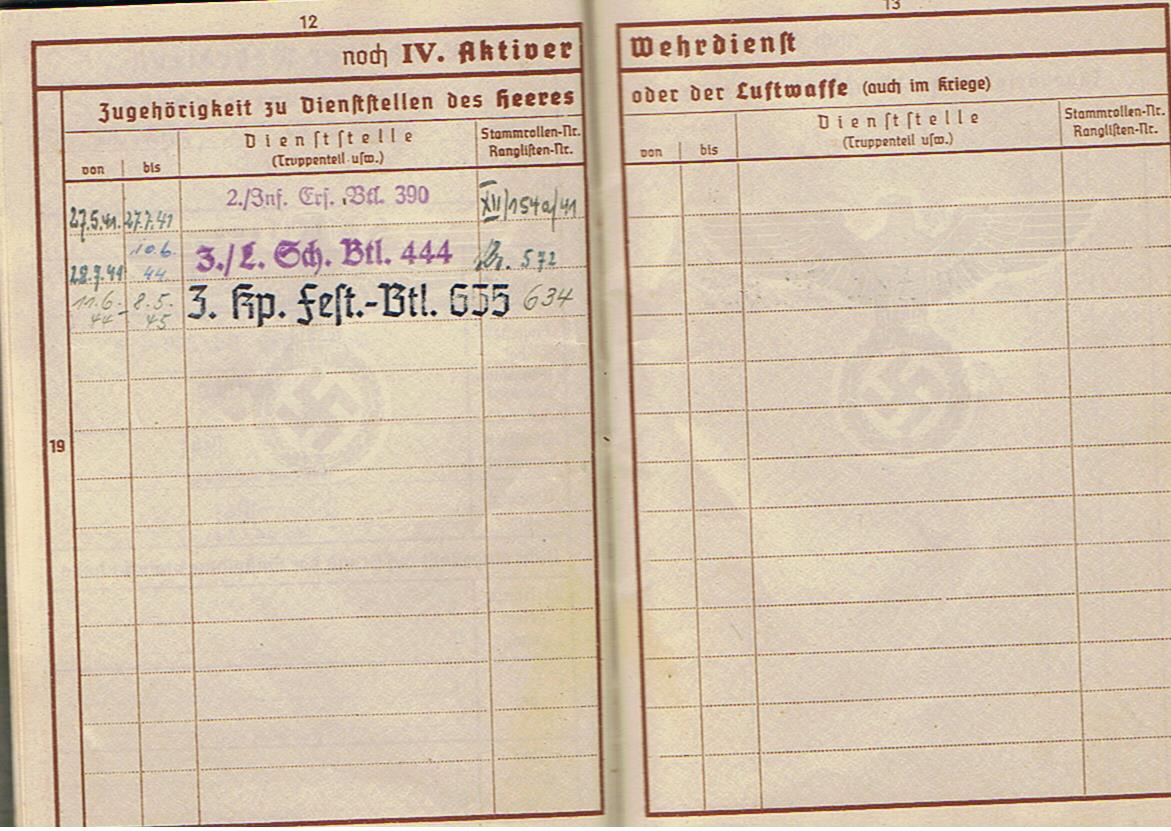 12
noch IV. Aktiver
Zugehörigkeit zu Dienststellen des Heeres
von
bis
Dienststelle
(Truppenteil usw.)
Stammrollen-Nr.
Ranglisten-Nr.
27.5.41. 27.7.41 2./Inf. Ers. Btl. 390 XII/154a/41
28.7.41 10.6. 44. 3./L. Sch. Btl. 444 Nr. 572
11.6. 44 - 8.5. 45 3. Kp. Fest.-Btl. 655 634
19
13
Wehrdienst
oder der Luftwaffe (auch im Kriege)
von
bis
Dienststelle
(Truppenteil usw.)
Stammrollen-Nr.
Ranglisten-Nr.